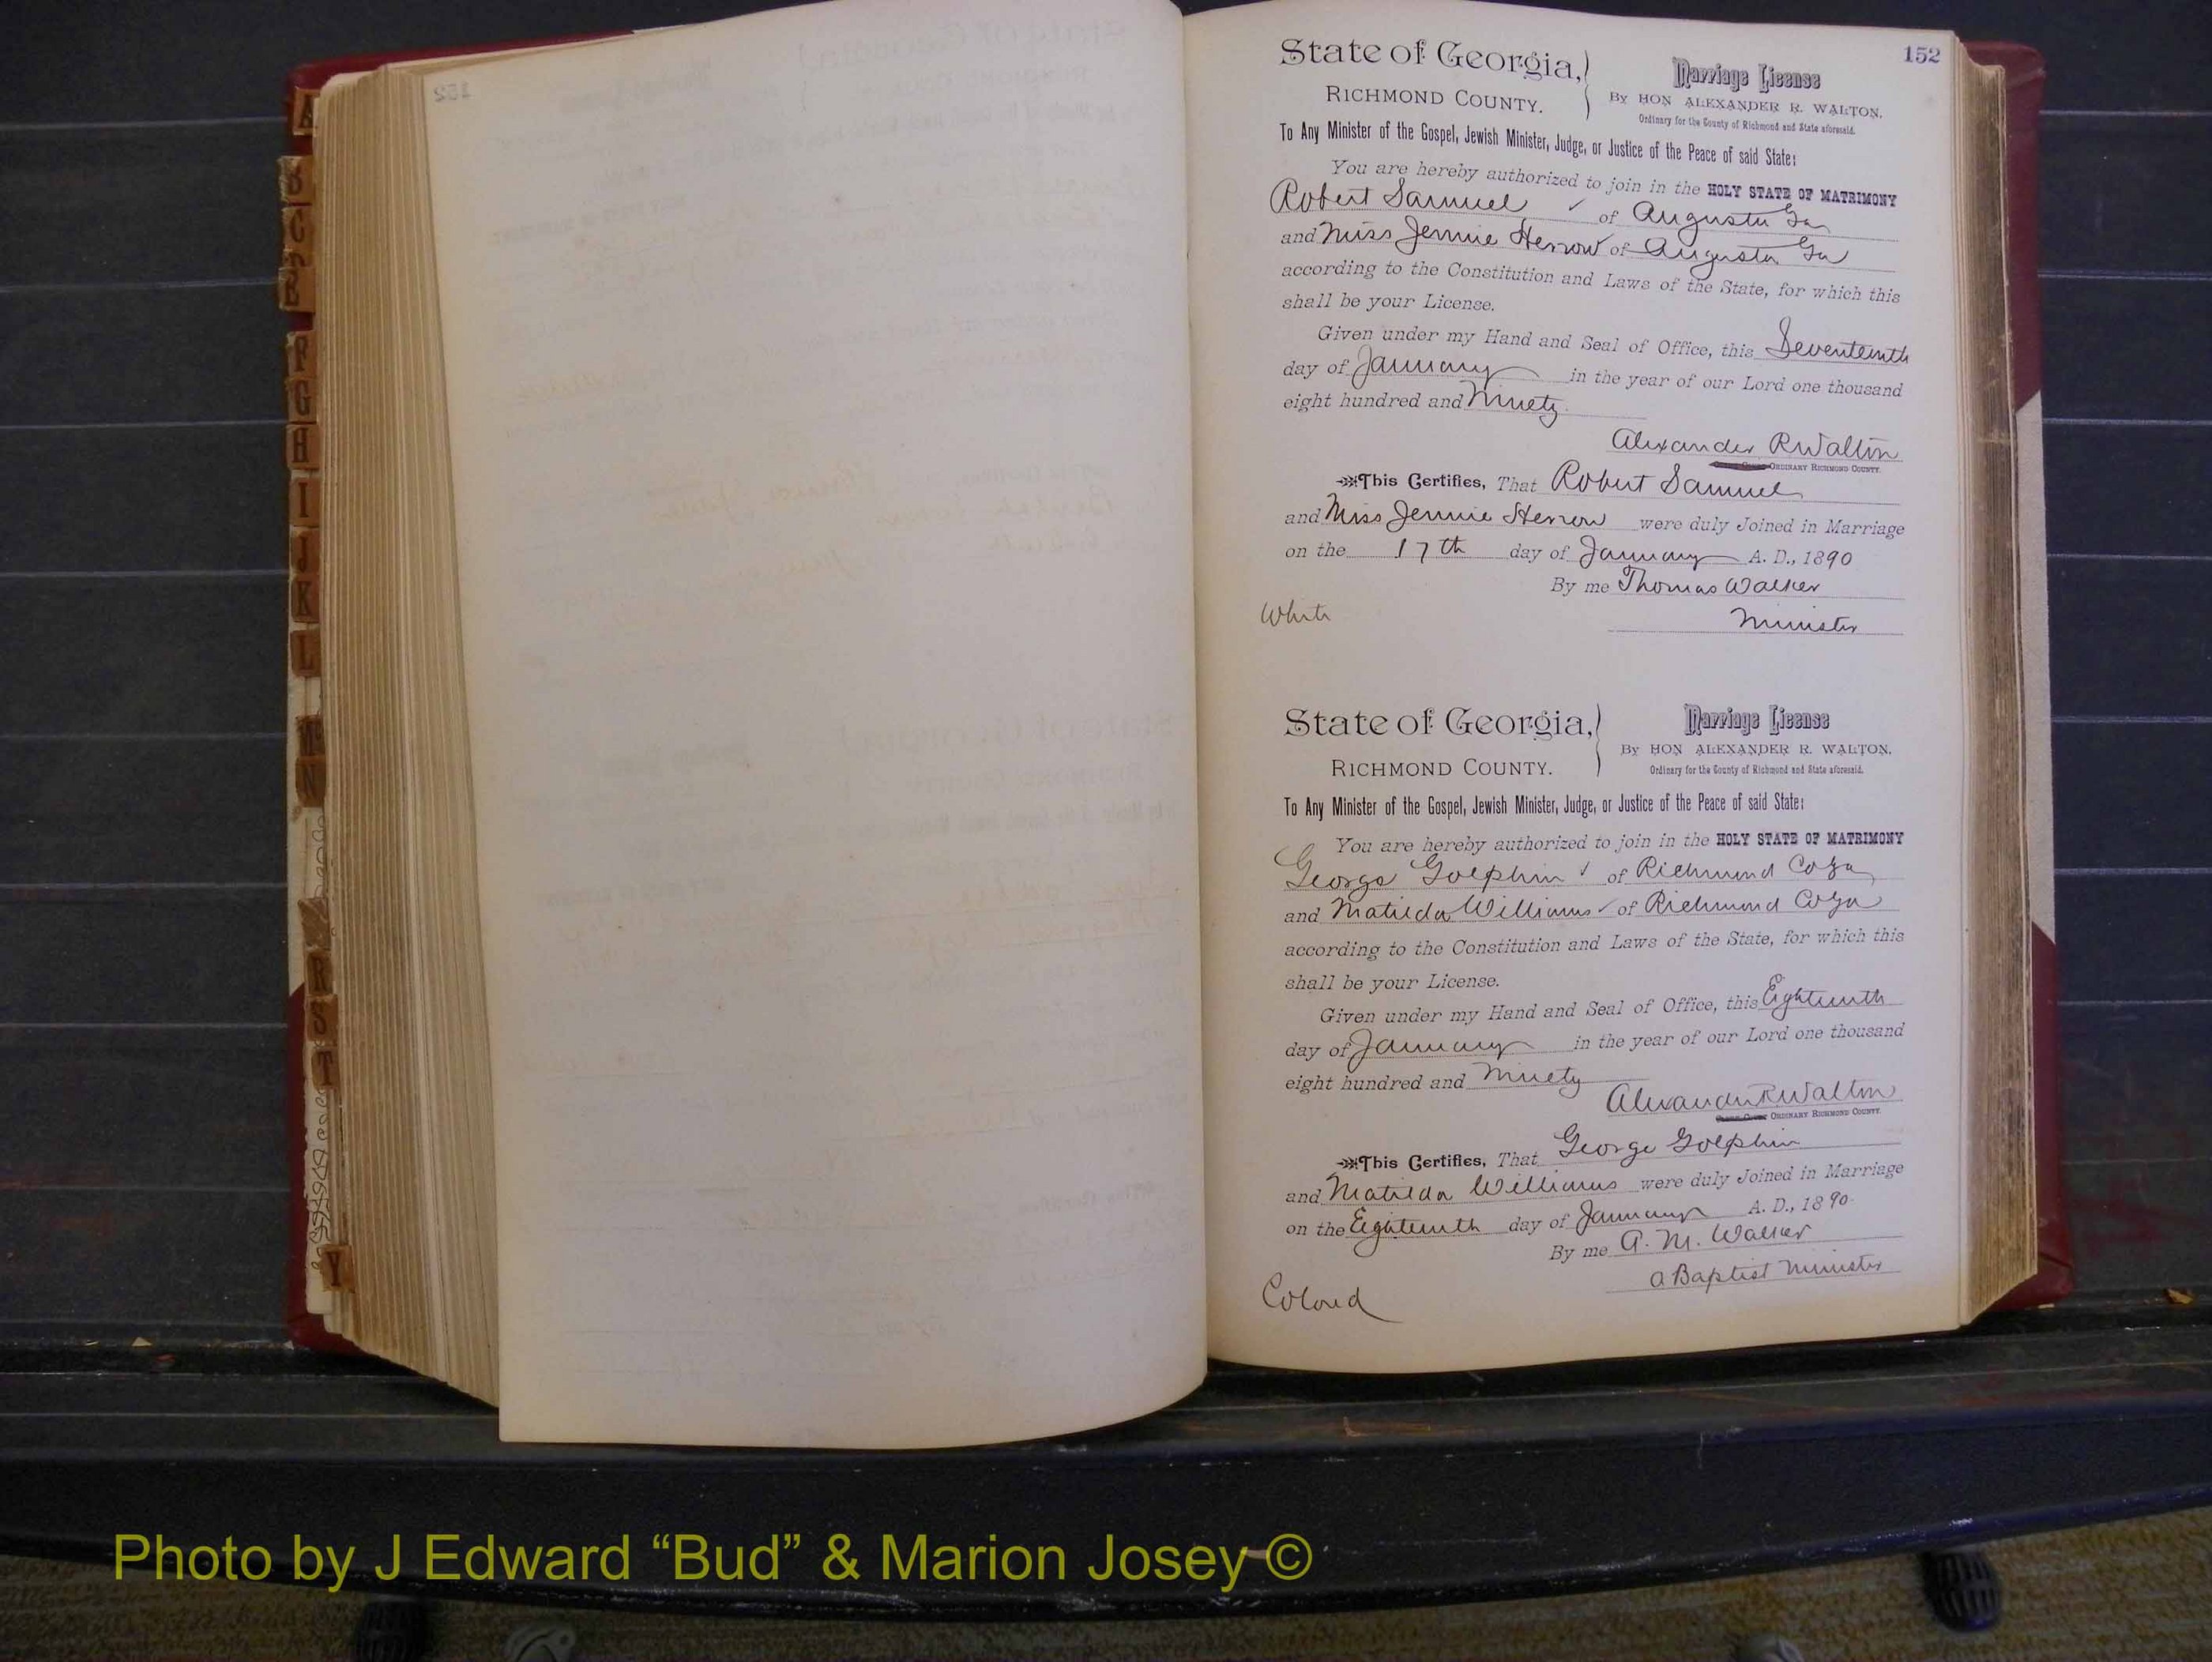 152
State of Georgia,
RICHMOND COUNTY.
Marriage License
By HON ALEXANDER R. WALTON,
Ordinary for the County of Richmond and State aforesaid.
To Any Minister of the Gospel, Jewish Minister, Judge, or Justice of the Peace of said State:
You are hereby authorized to join in the HOLY STATE OF MATRIMONY
Robert Samuel of Augusta Ga
and Miss Jennie Herron of Augusta Ga
according to the Constitution and Laws of the State, for which this
shall be your License.
Given under my Hand and Seal of Office, this Seventeenth
day of January in the year of our Lord one thousand
eight hundred and Ninety.
Alexander R Walton
ORDINARY RICHMOND COUNTY.
This Certifies, That Robert Samuel
and Miss Jennie Herron were duly Joined in Marriage
on the 17th day of January A. D., 1890
By me Thomas Walker
Minister
White
State of Georgia,
RICHMOND COUNTY.
Marriage License
By HON ALEXANDER R. WALTON,
Ordinary for the County of Richmond and State aforesaid.
To Any Minister of the Gospel, Jewish Minister, Judge, or Justice of the Peace of said State:
You are hereby authorized to join in the HOLY STATE OF MATRIMONY
George Golphin of Richmond Co Ga
and Matilda Williams of Richmond Co Ga
according to the Constitution and Laws of the State, for which this
shall be your License.
Given under my Hand and Seal of Office, this Eighteenth
day of January in the year of our Lord one thousand
eight hundred and Ninety
Alexander R Walton
ORDINARY RICHMOND COUNTY.
This Certifies, That George Golphin
and Matilda Williams were duly Joined in Marriage
on the Eighteenth day of January A. D., 1890
By me A. M. Walker
a Baptist Minister
Colored
A
B
C
F
G
H
I
J
K
L
Mc
N
R
S
T
Y
Photo by J Edward “Bud” & Marion Josey ©